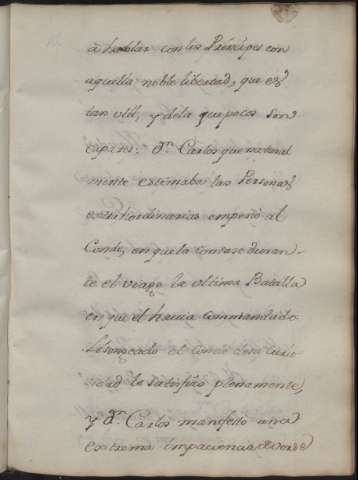 à hablar con los Principes con
aquella noble libertad, que es
tan util, y dela que pocos son
capazes: Dn. Carlos que natural
mente estimaba las Personas
extraordinarias empeñó al
Conde, en que la contase duran-
te el viage la ultima Batalla
en que él havia commandado
Lisongeado el Conde de su curio
sidad la satisfizo plenamente,
y Dn. Carlos manifesto una
extrema impaciencia de verse